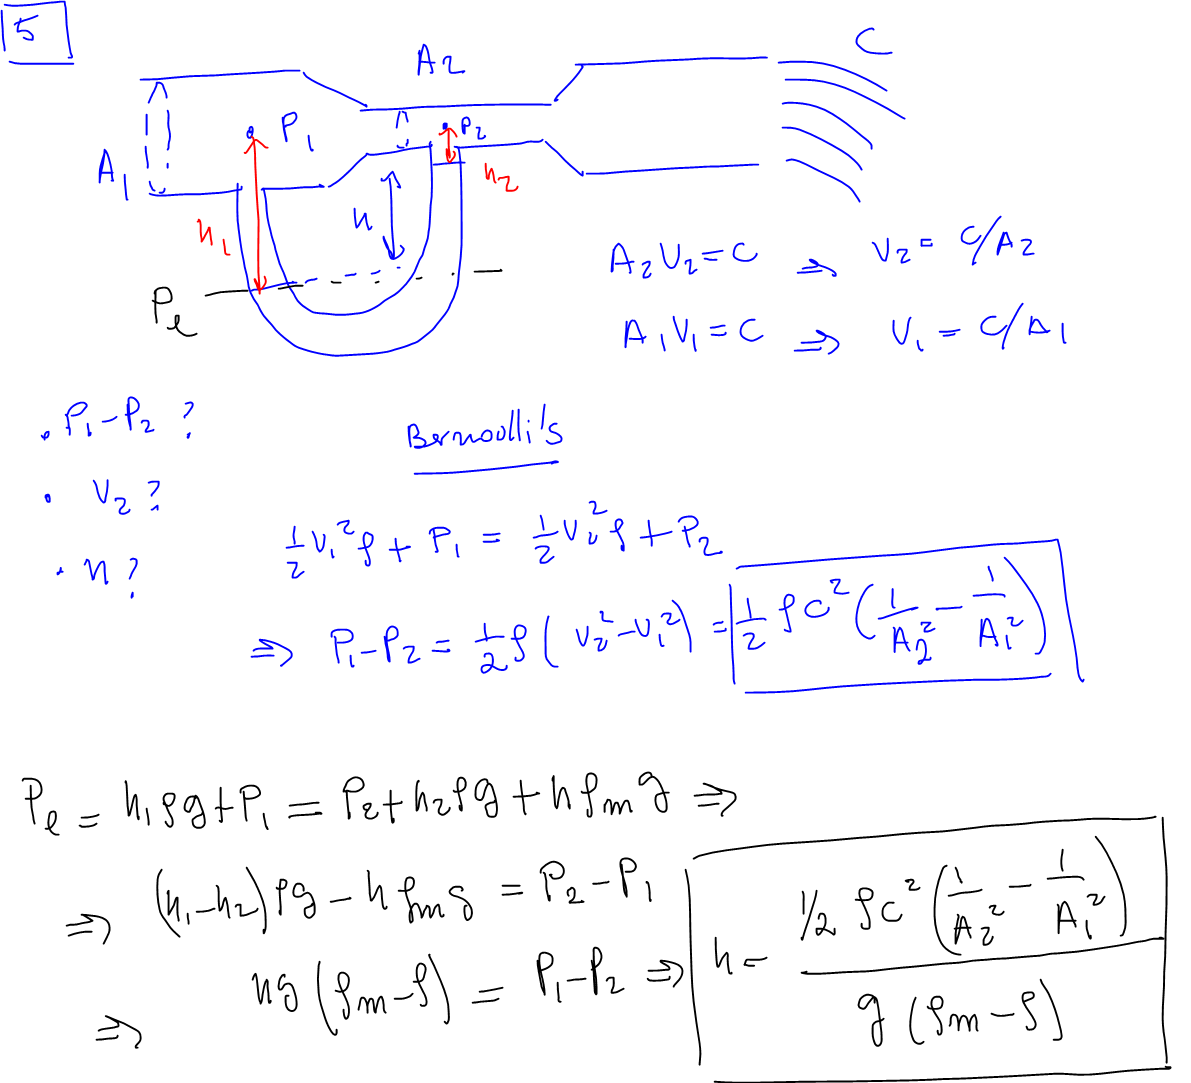 5
A2
C
P1
P2
A1
h2
h
h1
Pe
A2V2=C ⇒ V2=C/A2
A1V1=C ⇒ V1=C/A1
· P1-P2 ?
· V2 ?
· h ?
Bernoulli's
1/2 V1² ρ + P1 = 1/2 V2² ρ + P2
⇒ P1-P2 = 1/2 ρ (V2²-V1²) = 1/2 ρC² (1/A2² - 1/A1²)
Pe = h1ρg+P1 = P2+h2ρg+hρmg ⇒
⇒ (h1-h2)ρg-hρmg = P2-P1
⇒ hg(ρm-ρ) = P1-P2 ⇒ h= 1/2 ρC² (1/A2² - 1/A1²) / g(ρm-ρ)